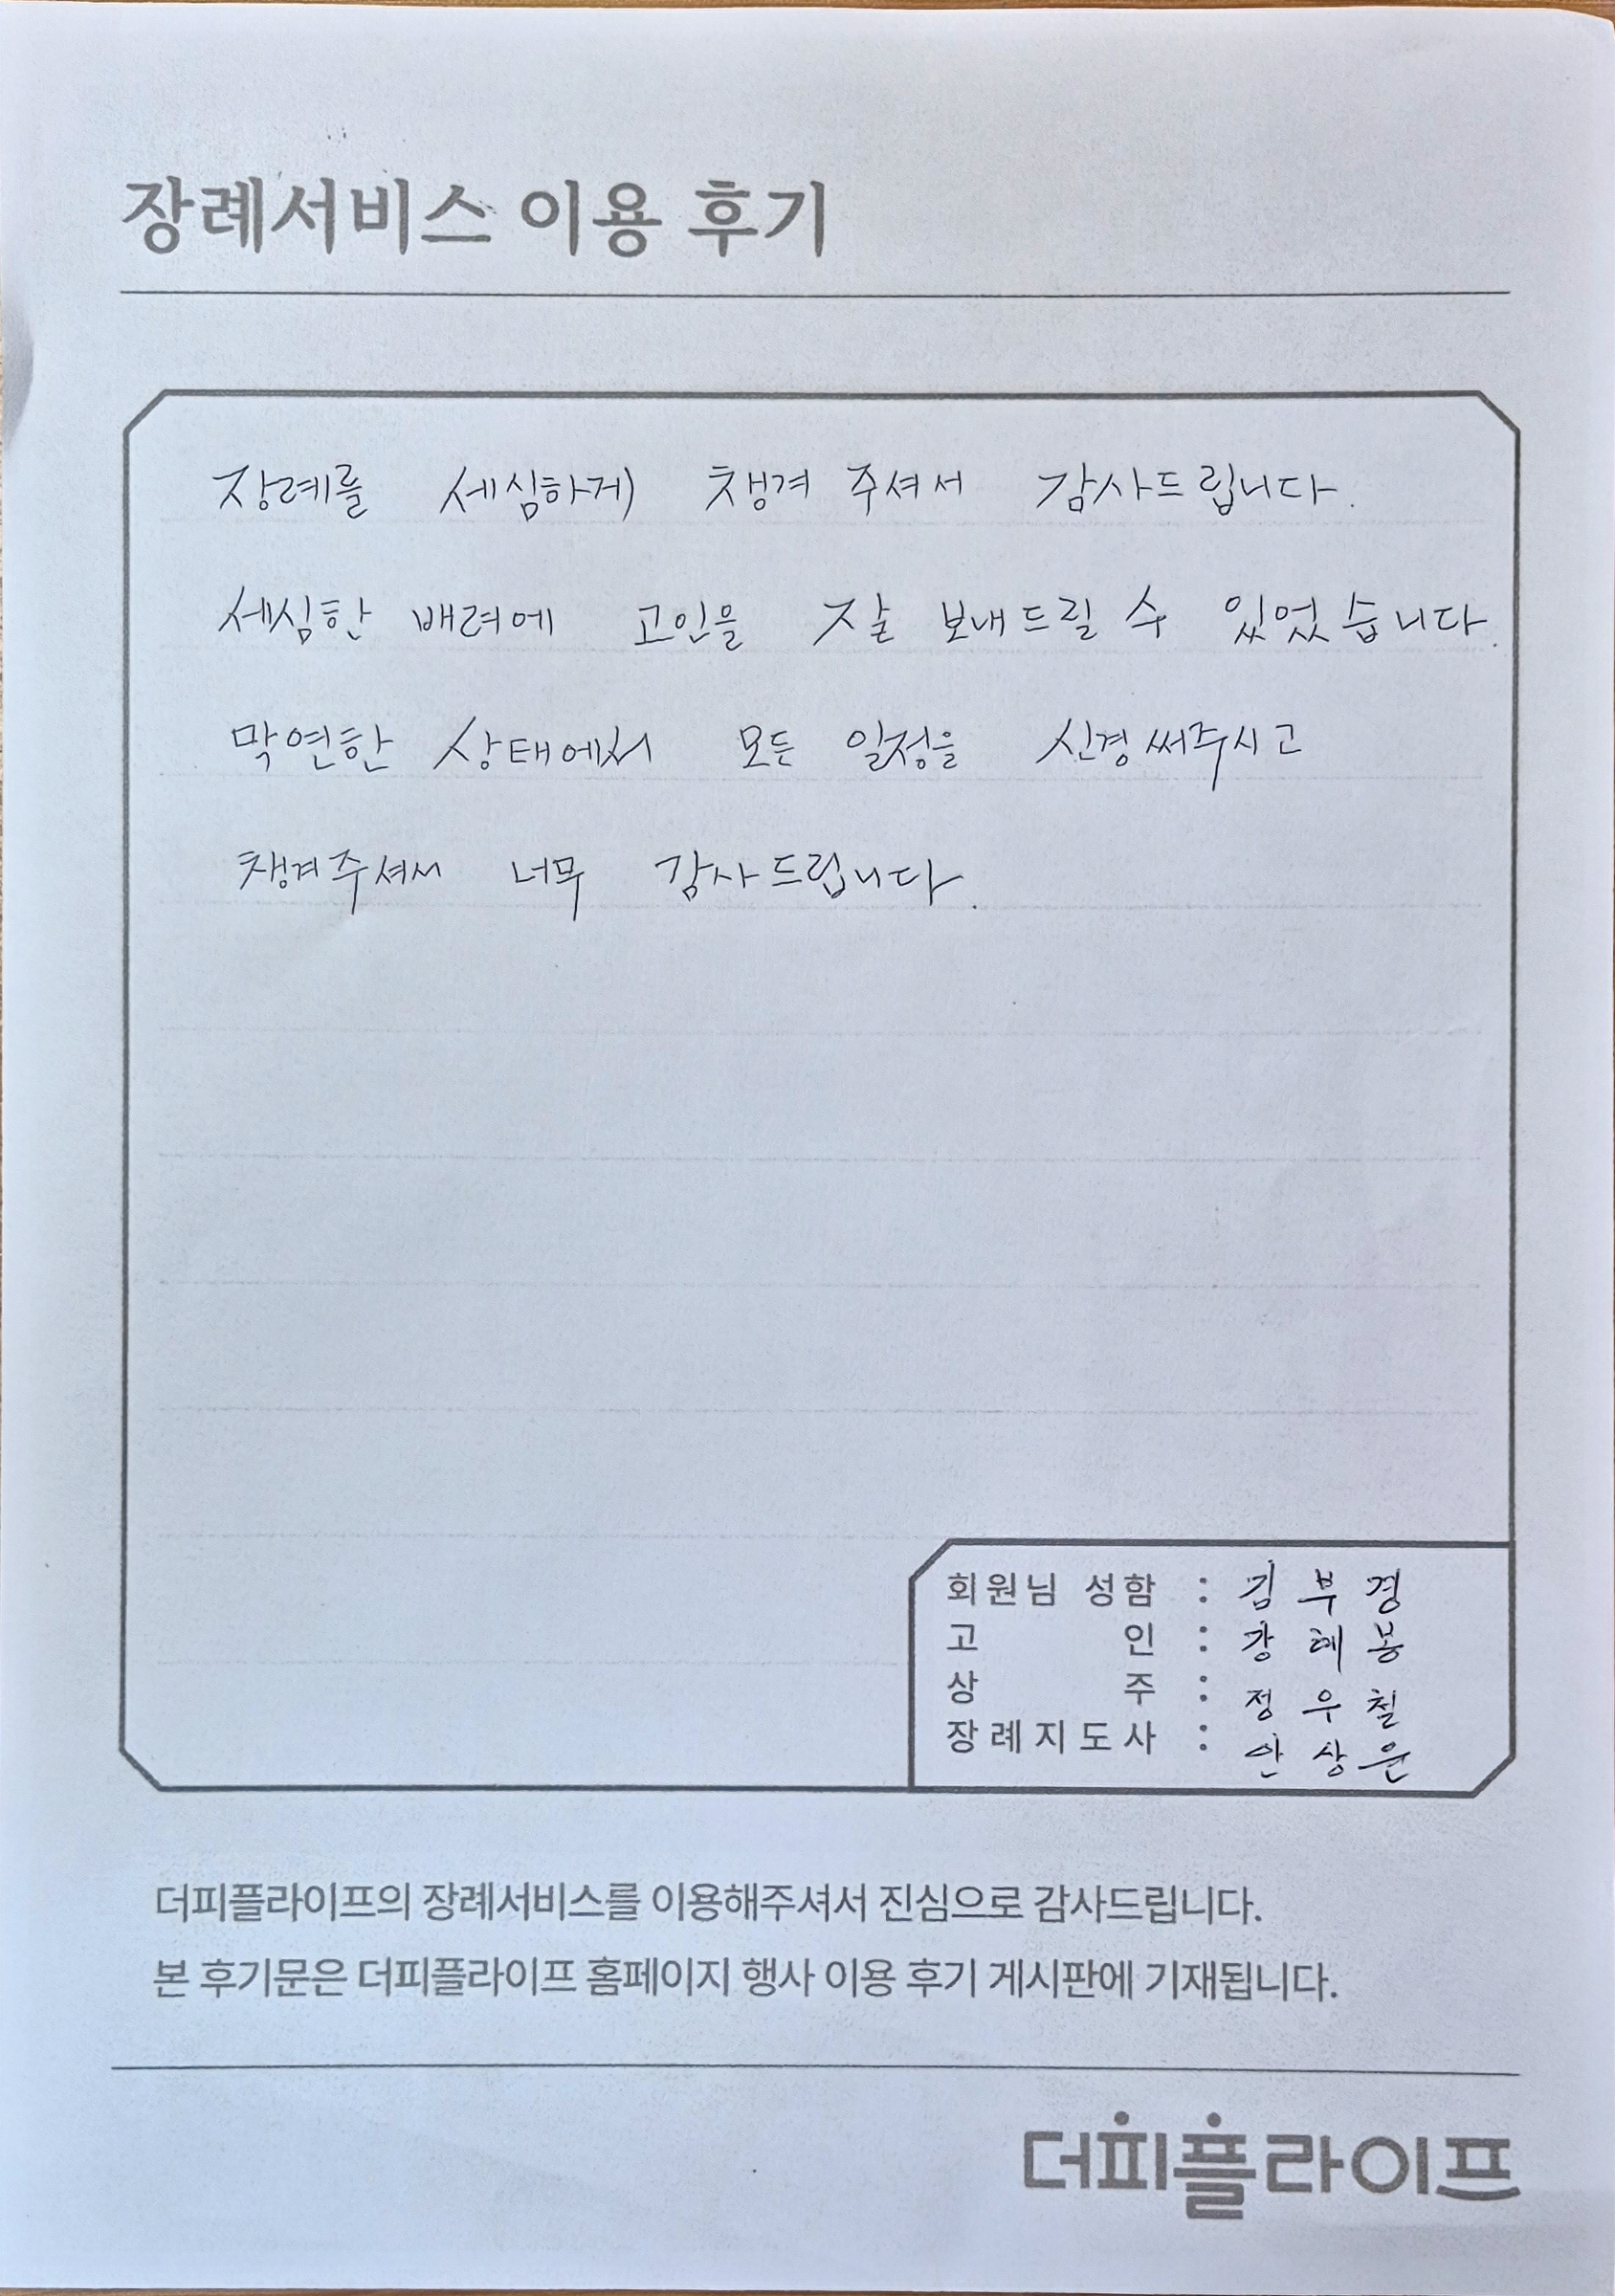 장례서비스 이용 후기
장례를 세심하게 챙겨 주셔서 감사드립니다.
세심한 배려에 고인을 잘 보내드릴 수 있었습니다.
막연한 상태에서 모든 일정을 신경써주시고
챙겨주셔서 너무 감사드립니다.
회원님 성함 : 김부경
고 인 : 강혜봉
상 주 : 정우철
장례지도사 : 안상윤
더피플라이프의 장례서비스를 이용해주셔서 진심으로 감사드립니다.
본 후기문은 더피플라이프 홈페이지 행사 이용 후기 게시판에 기재됩니다.
더피플라이프